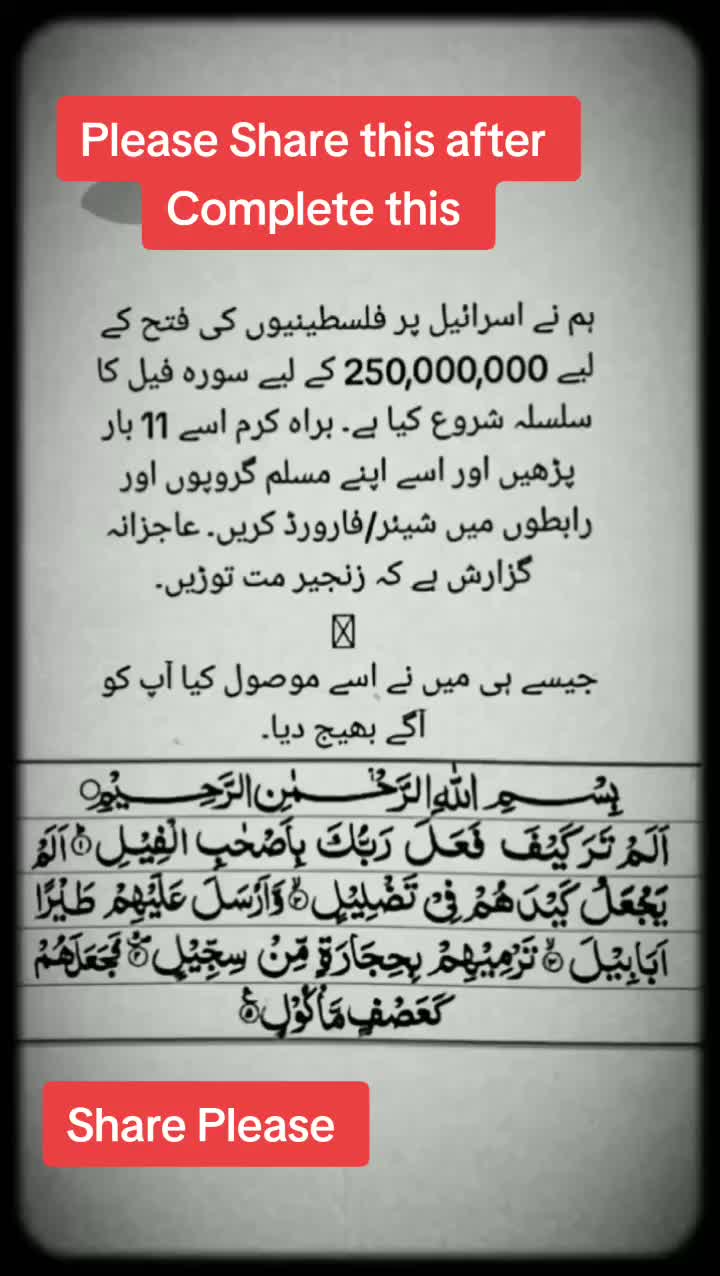 Please Share this after
Complete this
ہم نے اسرائیل پر فلسطینیوں کی فتح کے
لیے 250,000,000 کے لیے سورہ فیل کا
سلسلہ شروع کیا ہے۔ براہ کرم اسے 11 بار
پڑھیں اور اسے اپنے مسلم گروپوں اور
رابطوں میں شیئر/فارورڈ کریں۔ عاجزانہ
گزارش ہے کہ زنجیر مت توڑیں۔
جیسے ہی میں نے اسے موصول کیا آپ کو
آگے بھیج دیا۔
بِسْمِ اللّٰهِ الرَّحْمٰنِ الرَّحِيْمِ
اَلَمْ تَرَ كَيْفَ فَعَلَ رَبُّكَ بِاَصْحٰبِ الْفِيْلِ ۝۱ اَلَمْ
يَجْعَلْ كَيْدَهُمْ فِيْ تَضْلِيْلٍ ۝۲ وَّاَرْسَلَ عَلَيْهِمْ طَيْرًا
اَبَابِيْلَ ۝۳ تَرْمِيْهِمْ بِحِجَارَةٍ مِّنْ سِجِّيْلٍ ۝۴ فَجَعَلَهُمْ
كَعَصْفٍ مَّاْكُوْلٍ ۝۵
Share Please